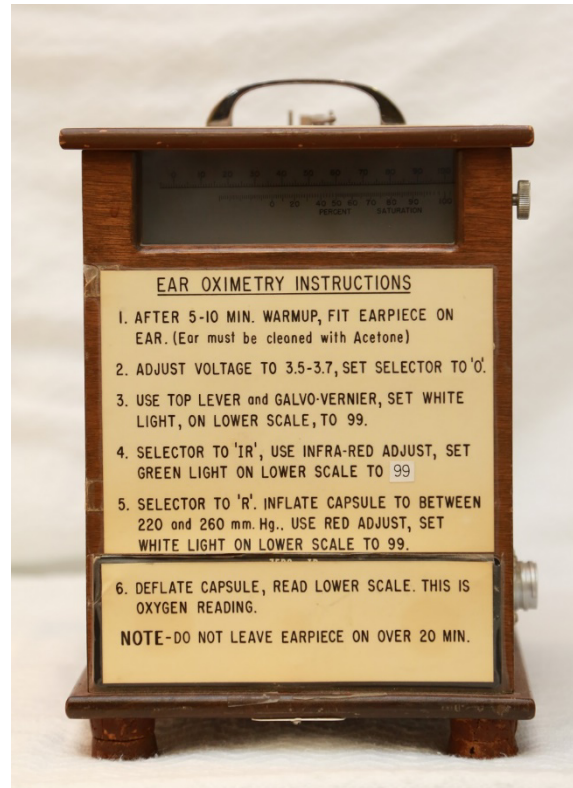 0 10 20 30 40 50 60 70 80 90 100
0 20 40 50 60 70 80 90 100
PERCENT SATURATION
EAR OXIMETRY INSTRUCTIONS
1. AFTER 5-10 MIN. WARMUP, FIT EARPIECE ON
EAR. (Ear must be cleaned with Acetone)
2. ADJUST VOLTAGE TO 3.5-3.7, SET SELECTOR TO 'O'.
3. USE TOP LEVER and GALVO-VERNIER, SET WHITE
LIGHT, ON LOWER SCALE, TO 99.
4. SELECTOR TO 'IR', USE INFRA-RED ADJUST, SET
GREEN LIGHT ON LOWER SCALE TO 99
5. SELECTOR TO 'R'. INFLATE CAPSULE TO BETWEEN
220 and 260 mm. Hg., USE RED ADJUST, SET
WHITE LIGHT ON LOWER SCALE TO 99.
6. DEFLATE CAPSULE, READ LOWER SCALE. THIS IS
OXYGEN READING.
NOTE-DO NOT LEAVE EARPIECE ON OVER 20 MIN.